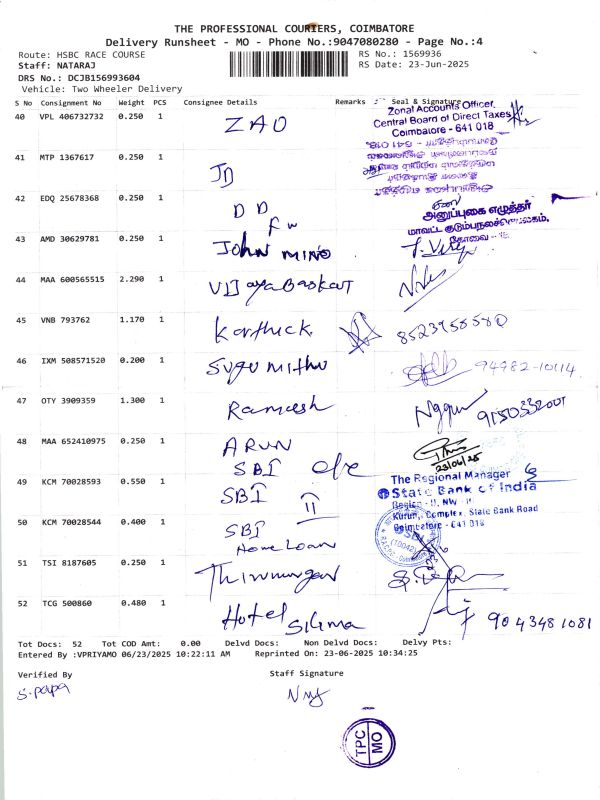 THE PROFESSIONAL COURIERS, COIMBATORE
Delivery Runsheet - MO - Phone No.:9047080280 - Page No.:4
Route: HSBC RACE COURSE
RS No.: 1569936
Staff: NATARAJ
RS Date: 23-Jun-2025
DRS No.: DCJB156993604
Vehicle: Two Wheeler Delivery
S No Consignment No Weight PCS Consignee Details Remarks Seal & Signature
Zonal Accounts Officer,
Central Board of Direct Taxes
Coimbatore - 641 018
40 VPL 406732732 0.250 1 ZAO
41 MTP 1367617 0.250 1 JD
42 EDQ 25678368 0.250 1 DD
அனுப்புகை எழுத்தர்
43 AMD 30629781 0.250 1 John
44 MAA 600565515 2.290 1 VIJayaBaskar
45 VNB 793762 1.170 1 Karthick 8523958580
46 IXM 508571520 0.200 1 Sugumithu 94982-10114
47 OTY 3909359 1.300 1 Ramesh
48 MAA 652410975 0.250 1 ARUN
23/06/25
SBI
The Regional Manager
49 KCM 70028593 0.550 1 SBI II
State Bank of India
Region - II, NW - II
Kurunji Complex, State Bank Road
Coimbatore - 641 018
50 KCM 70028544 0.400 1 SBI
Home Loan
51 TSI 8187605 0.250 1 Thirumurgan
52 TCG 500860 0.480 1 Hotel Sigma 9043481081
Tot Docs: 52 Tot COD Amt: 0.00 Delvd Docs: Non Delvd Docs: Delvy Pts:
Entered By :VPRIYAMO 06/23/2025 10:22:11 AM Reprinted On: 23-06-2025 10:34:25
Verified By Staff Signature
S. papa
TPC
MO